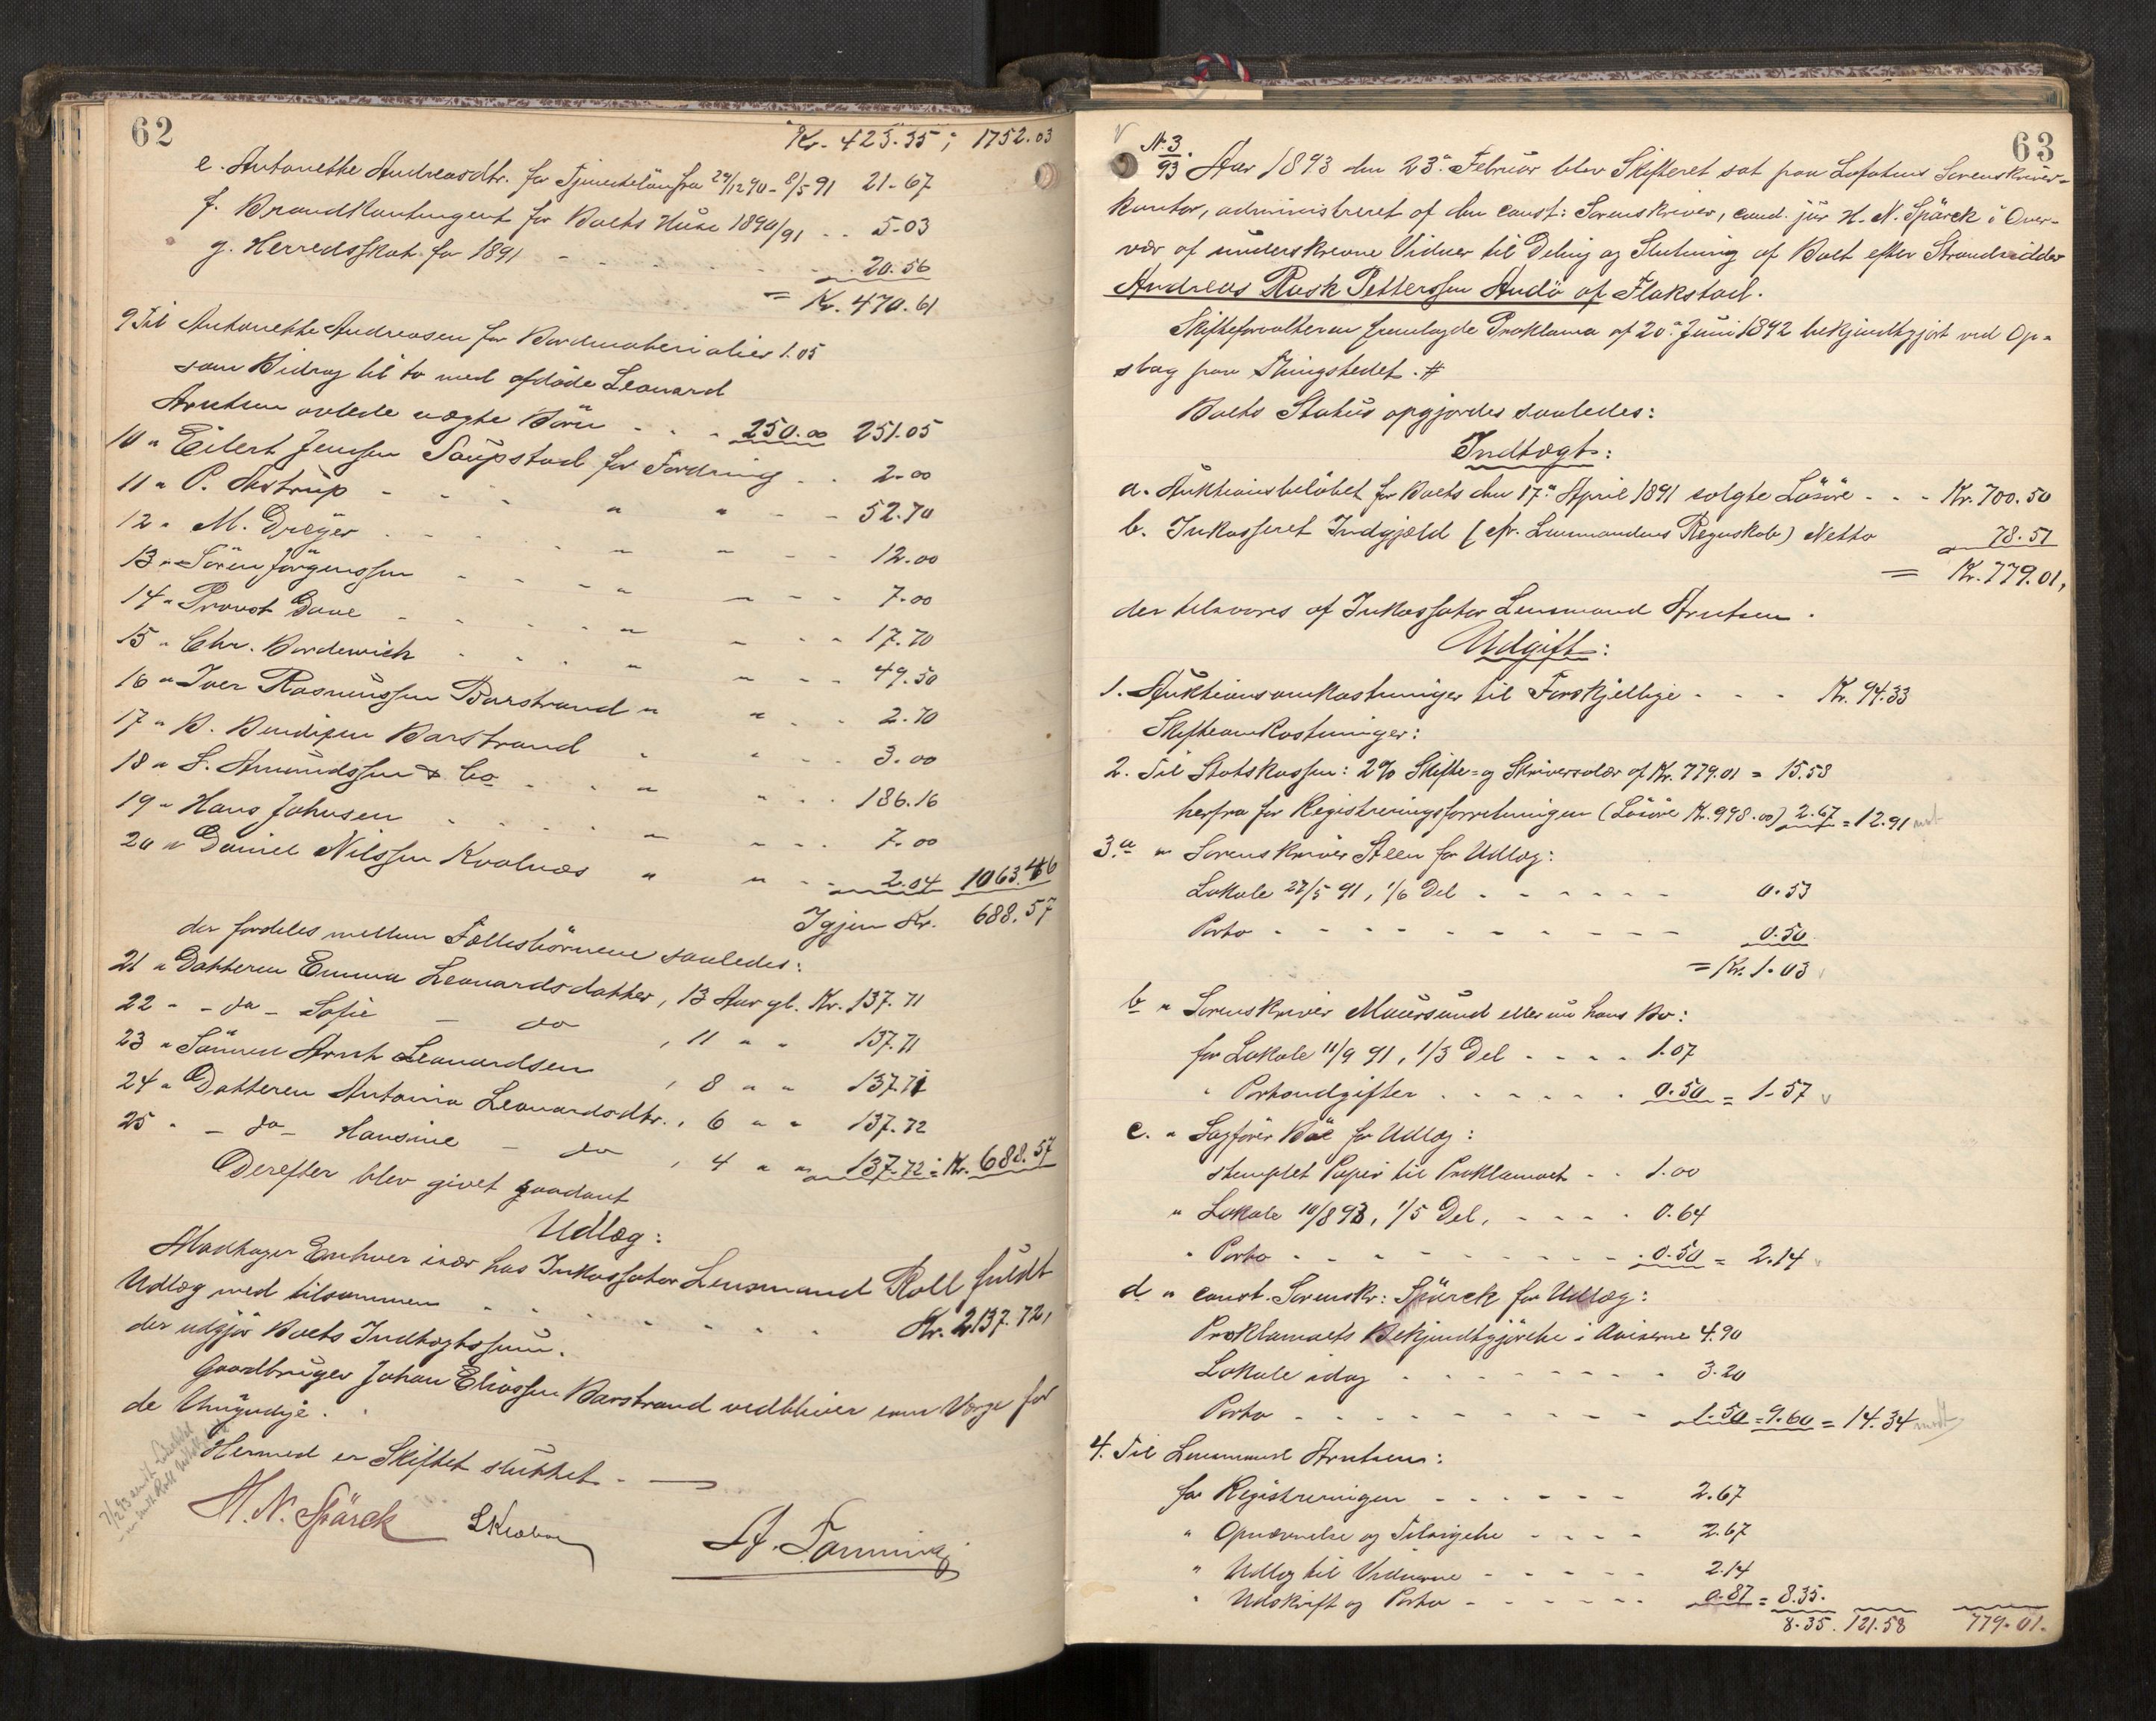 62
Kr. 423.35; 1752.03
e. Antonette Andreasdtr. for Tjenesteløn fra 29/12 90 - 8/5 91 21-67
f. Brandkontingent for Boets Huse 1890/91 - - 5-03
g. Herredsskat for 1891 - - - - - 20.56
= Kr. 470.61
9 Til Antonette Andreasen for Bordmaterialier 1.05
som Bidrag til to med afdøde Leonard
Arntsen avlede uægte Börn - - - 250.00 251.05
10 " Eilert Jensen Saupstad for Fordring - - 2-00
11 " P. Astrup - - - " " - - 52.70
12 " M. Dreyer - - - " " - - 12.00
13 " Sören Jörgenssen - - " " - - 7-00
14 " Provst Daae - - - " " - - 17.70
15 " Chr. Bordewich - - - " " - - 49.50
16 " Iver Rasmussen Barstrand " " - - 2.70
17 " B. Bendixen Barstrand " " - - 3.00
18 " L. Amundssen & Co - - " " - - 186.16
19 " Hans Johnsen - - - " " - - 7-00
20 " Daniel Nilssen Kvalnæs " " - - 2.04 1063.46
Igjen Kr. 688.57
der fordeles mellem Fællesbörnene saaledes:
21 " Datteren Emma Leonardsdatter, 13 Aar gl. Kr. 137.71
22 " - do - Sofie - do , 11 " " 137.71
23 " Sönnen Arnt Leonardsen , 8 " " 137.71
24 " Datteren Antonia Leonardsdtr., 6 " " 137.72
25 " - do - Hansine - do , 4 " " 137.72 = Kr. 688.57
Derefter blev givet saadant
Udlæg:
Modtager Enhver især hos Inkassator Lensmand Roll fuldt
Udlæg med tilsammen - - - - - - Kr. 2137.72,
der udgjör Boets Indtægtssum.
Gaardbruger Johan Eliassen Barstrand vedbliver som Værge for
de Umyndige.
Hermed er Skiftet sluttet. —
H. N. Spärck
A. Fanning
63
N. 3/93. Aar 1893 den 23de Februar blev Skifteret sat paa Lofotens Sorenskriver-
kontor, administreret af den const: Sorenskriver, cand. jur H. N. Spärck i Over-
vær af underskrevne Vidner til Deling og Slutning af Boet efter Strandsidder
Andreas Rask Petterssen Andö af Flakstad.
Skifteforvalteren fremlagde Proklama af 20de Juni 1892 bekjendtgjort ved Op-
slag paa Thingstedet. #
Boets Status opgjordes saaledes:
Indtægt:
a. Auktionsbelöbet for Boets den 17de April 1891 solgte Lösöre - - - Kr. 700.50
b. Inkasseret Indgjæld (cfr. Lensmandens Regnskab) Netto 78.51
= Kr. 779.01,
der tilsvares af Inkassator Lensmand Arntsen.
Udgift:
1. Auktionsomkostninger til Forskjellige - - - Kr. 94.33
Skifteomkostninger:
2. Til Statskassen: 2% Skifte- og Skriversalær af Kr. 779.01 = 15.58
herfra for Registreringsforretningen (Lösöre Kr. 998.00) 2.67 = 12.91
3. a " Sorenskriver Steen for Udlæg:
Lokale 27/5 91, 1/6 Del - - - - - - 0.53
Porto - - - - - - - - - - 0.50
= Kr. 1.03
b " Sorenskriver Maursund eller nu hans Bo:
for Lokale 11/9 91, 1/3 Del - - - - 1.07
" Portoudgifter - - - - - - 0.50 = 1-57
c. " Sagförer Böe for Udlæg:
stemplet Papir til Proklamaet - - 1.00
" Lokale 10/8 92, 1/5 Del, - - - - 0.64
" Porto - - - - - - - - - 0.50 = 2.14
d " const. Sorenskr: Spärck for Udlæg:
Proklamaets Bekjendtgjörelse i Aviserne 4.90
Lokale idag - - - - - - - - 3.20
Porto - - - - - - - - - 1.50 = 9.60 = 14.34
4. Til Lensmand Arntsen:
for Registreringen - - - - - - 2.67
" Opnævnelse og Tilsigelse - - - - 2.67
" Udlæg til Vidnerne - - - - - 2.14
" Udskrift og Porto - - - - - - 0.87 = 8.35.
8.35. 121.58 779.01.